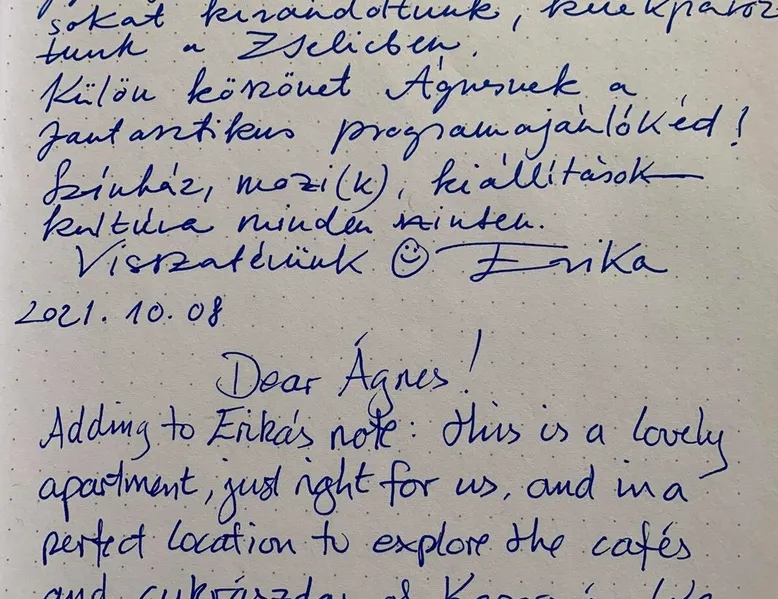 sokat kirándoltunk, kerékpároz
tunk a Zselicben.
Külön köszönet Ágnesnek a
fantasztikus programajánlókéd!
Színház, mozi(k), kiállítások
kultúra minden szinten.
Visszatérünk ☺ Erika
2021.10.08
Dear Ágnes!
Adding to Erika's note: this is a lovely
apartment, just right for us, and in a
perfect location to explore the cafés
and cukrászdas of